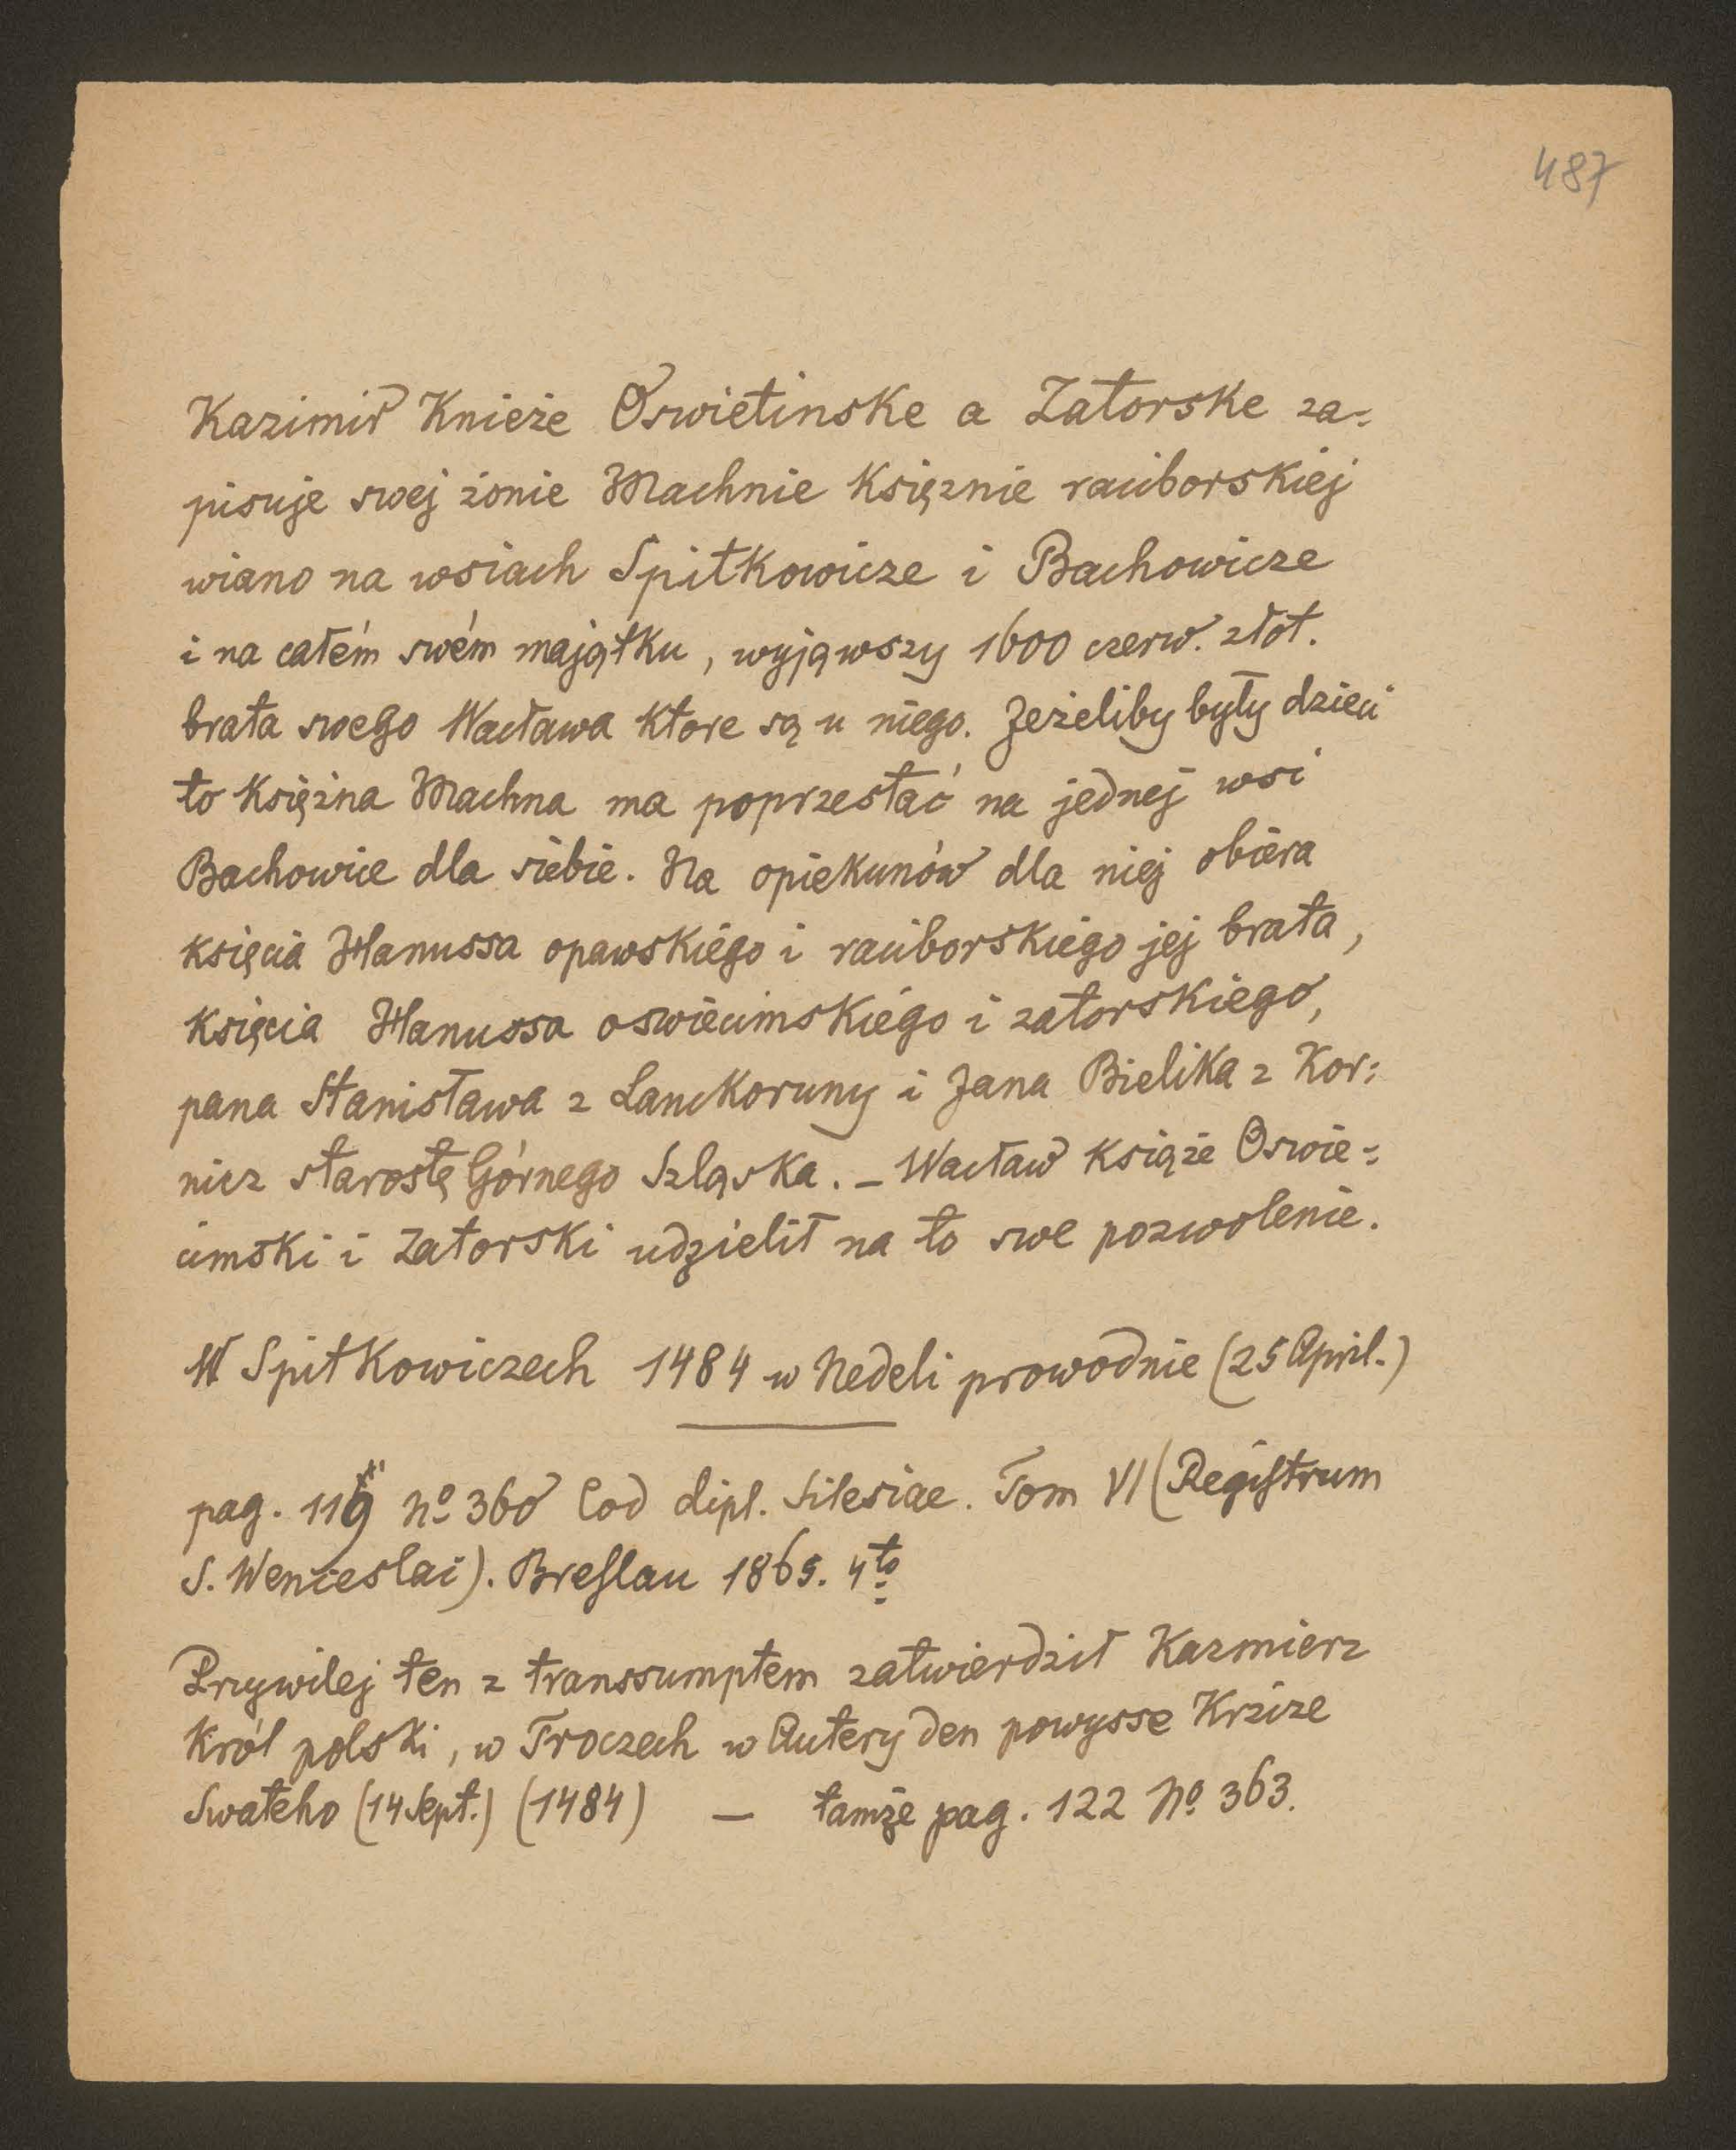 487
Kazimiř Knieże Oswietinske a Zatorske za-
pisuje swej żonie Machnie Księżnie raciborskiej
wiano na wsiach Spitkowicze i Bachowicze
i na całém swém majątku, wyjąwszy 1600 czerw. złot.
brata swego Wacława które są u niego. Jeżeliby były dzieci
to księżna Machna ma poprzestać na jednej wsi
Bachowice dla siebie. Na opiekunów dla niej obiera
księcia Hanussa opawskiégo i raciborskiego jej brata,
Księcia Hanussa oswiecimskiégo i zatorskiego,
pana Stanisława z Lanckoruny i Jana Bielika z Kor-
nicz starostę Górnego Szląska. – Wacław książe Oswie-
cimski i Zatorski udzielił na to swe pozwolenie.
W Spitkowiczech 1484 w Nedeli prowodnie (25 April.)
pag. 119 No 360 Cod dipl. Silesiae. Tom VI (Registrum
S. Wenceslai). Breslau 1865. 4to
Przywilej ten z transsumptem zatwierdził Kazmierz
Król polski, w Troczech w Autery den powysse Krzize
Swateho (14 Sept.) (1484) – tamże pag. 122 No 363.